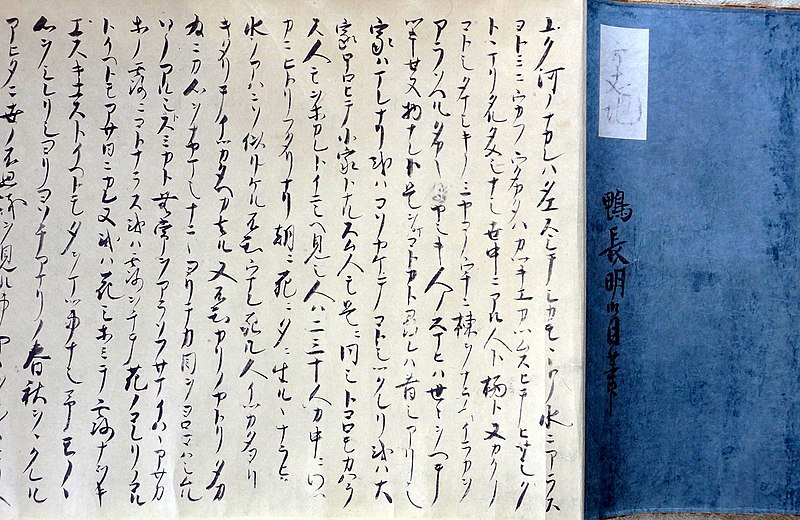 方丈記
鴨長明自筆
ユク河ノナカレハタエスシテシカモヽトノ水ニアラス
ヨトミニウカフウタカタハカツキエカツムスヒテヒサシク
トヽマリタルタメシナシ世中ニアル人ト栖ト又カクノ
コトシタマシキノミヤコノウチニ棟ヲナラヘイラカヲ
アラソヘルタカキイヤシキ人ノスマヒハ世々ヲヘテ
ツキセヌ物ナレト是ヲマコトカト尋レハ昔シアリシ
家ハマレナリ或ハコソヤケテコトシツクレリ或ハ大
家ホロヒテ小家トナルスム人モ是ニ同シトコロモカハラ
ス人モヲホカレトイニシヘ見シ人ハ二三十人カ中ニワツ
カニヒトリフタリナリ朝ニ死ニ夕ニ生ルヽナラヒ
水ノアハニソ似リケル不知ウマレ死ル人イツカタヨリ
キタリテイツカタヘカ去ル又不知カリノヤトリタカ
為ニカ心ヲナヤマシナニヽヨリテカ目ヲヨロコハシムル
ソノアルシトスミカト無常ヲアラソフサマイハヽアサカ
ホノ露ニコトナラス或ハ露ヲチテ花ノコレリノコル
トイヘトモアサ日ニカレヌ或ハ花シホミテ露ナヲキ
エスキエストイヘトモ夕ヲマツ事ナシ予モノヽ
心ヲシレリシヨリヨソチアマリノ春秋ヲヽクレル
アヒタニ世ノ不思議ヲ見ル事